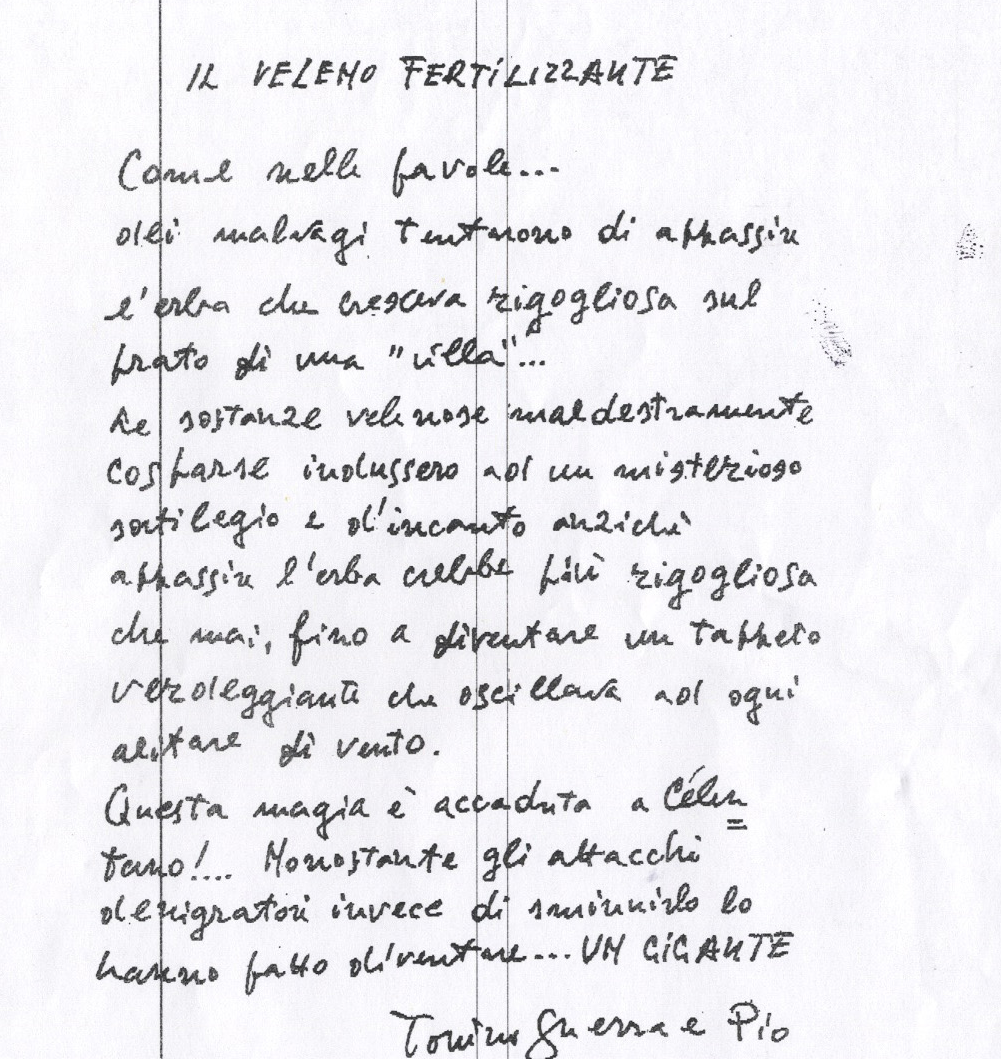 IL VELENO FERTILIZZANTE
Come nelle favole...
dei malvagi tentarono di appassire
l'erba che cresceva rigogliosa sul
prato di una "villa"...
Le sostanze velenose maldestramente
cosparse indussero ad un misterioso
sortilegio e d'incanto anzichè
appassire l'erba crebbe più rigogliosa
che mai, fino a diventare un tappeto
verdeggiante che oscillava ad ogni
alitare di vento.
Questa magia è accaduta a Célen
tano!... Nonostante gli attacchi
denigratori invece di sminuirlo lo
hanno fatto diventare... UN GIGANTE
Tonino Guerra e Pio